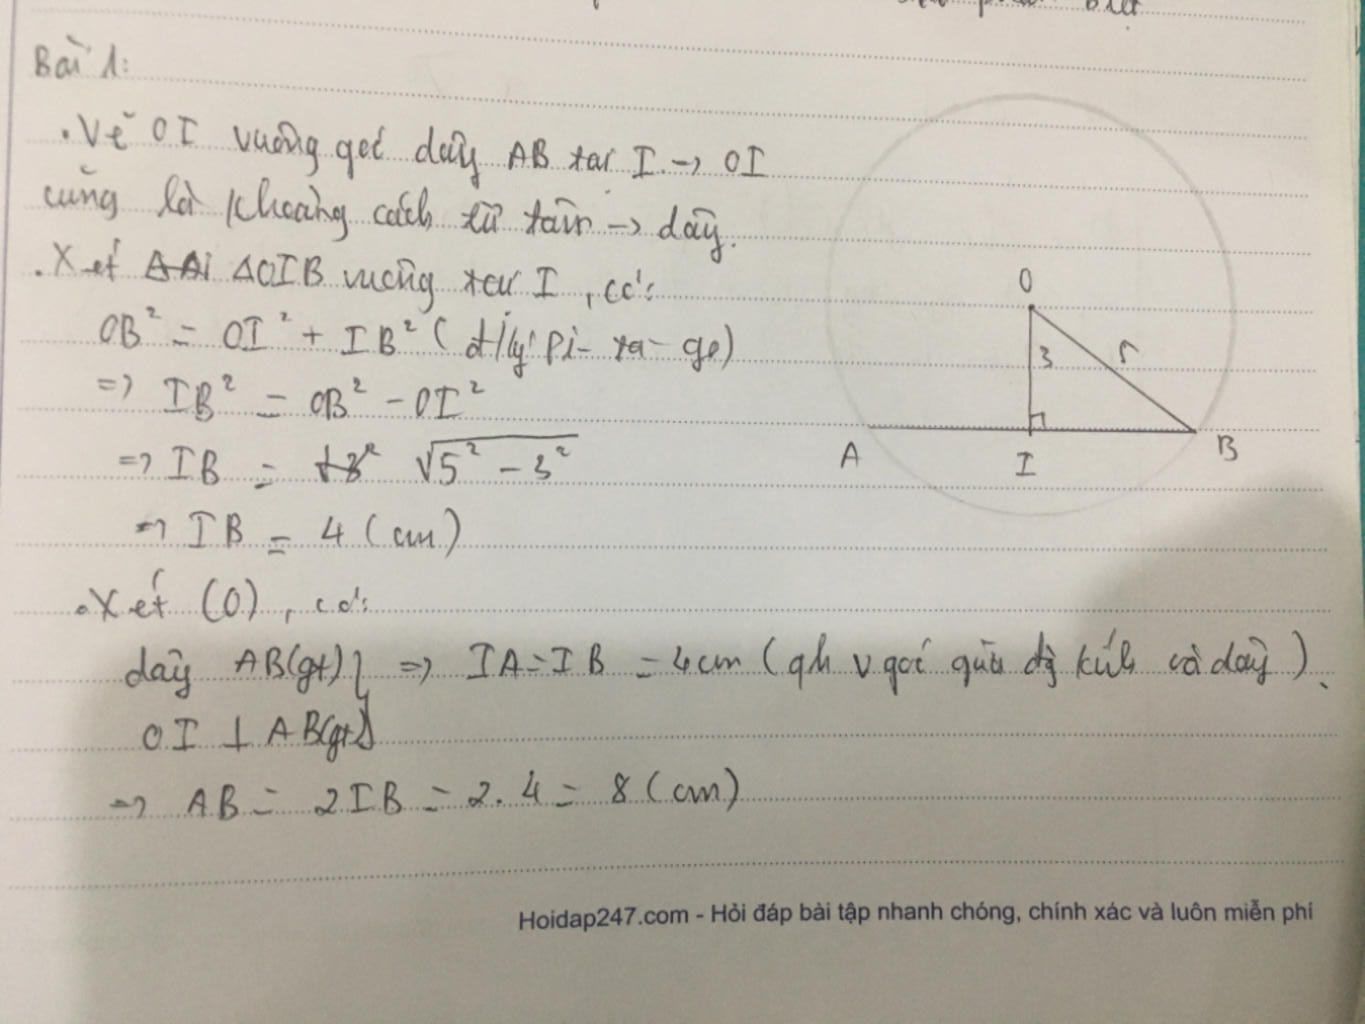 Bài 1:
. Vẽ OI vuông góc dây AB tại I → OI
cũng là khoảng cách từ tâm → dây.
. Xét ΔOIB vuông tại I, có:
OB² = OI² + IB² (đ/lý Pi-ta-go)
=> IB² = OB² - OI²
=> IB = √5² - 3²
=> IB = 4 (cm)
. Xét (O), có:
dây AB(gt) } => IA = IB = 4cm (qh v góc giữa đg kính và dây).
OI ⊥ AB(gt)
=> AB = 2IB = 2.4 = 8 (cm)
O
3
5
A
I
B
Hoidap247.com - Hỏi đáp bài tập nhanh chóng, chính xác và luôn miễn phí